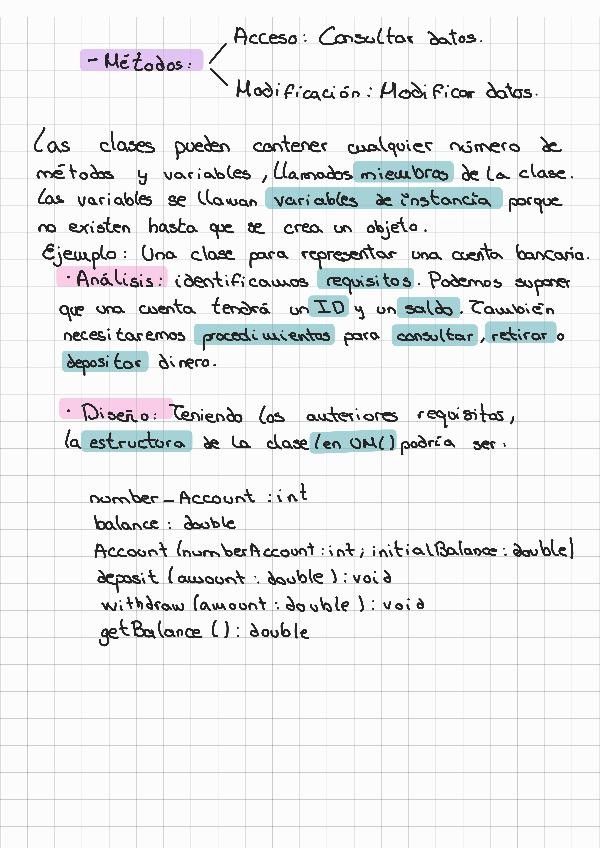 Acceso: Consultar datos.
- Métodos:
Modificación: Modificar datos.
Las clases pueden contener cualquier número de
métodos y variables, llamados miembros de la clase.
Las variables se llaman variables de instancia porque
no existen hasta que se crea un objeto.
Ejemplo: Una clase para representar una cuenta bancaria.
· Análisis: identificamos requisitos. Podemos suponer
que una cuenta tendrá un ID y un saldo. También
necesitaremos procedimientos para consultar, retirar o
depositar dinero.
· Diseño: Teniendo los anteriores requisitos,
la estructura de la clase (en UML) podría ser:
number_Account : int
balance : double
Account (numberAccount : int; initialBalance : double)
deposit (amount : double) : void
withdraw (amount : double) : void
getBalance () : double